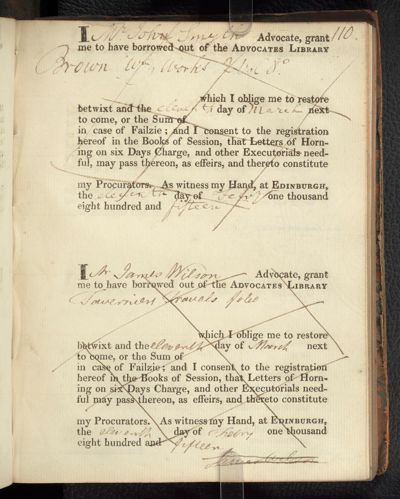 110.
I Mr John Smyth Advocate, grant
me to have borrowed out of the ADVOCATES LIBRARY
Brown Works
which I oblige me to restore
betwixt and the eleventh day of March next
to come, or the Sum of
in case of Failzie; and I consent to the registration
hereof in the Books of Session, that Letters of Horn-
ing on six Days Charge, and other Executorials need-
ful, may pass thereon, as effeirs, and thereto constitute
my Procurators. As witness my Hand, at EDINBURGH,
the eleventh day of Febry one thousand
eight hundred and fifteen
I Mr James Wilson Advocate, grant
me to have borrowed out of the ADVOCATES LIBRARY
Taverniers Travels folio
which I oblige me to restore
betwixt and the eleventh day of March next
to come, or the Sum of
in case of Failzie; and I consent to the registration
hereof in the Books of Session, that Letters of Horn-
ing on six Days Charge, and other Executorials need-
ful may pass thereon, as effeirs, and thereto constitute
my Procurators. As witness my Hand, at EDINBURGH,
the eleventh day of Febry one thousand
eight hundred and fifteen
James Wilson